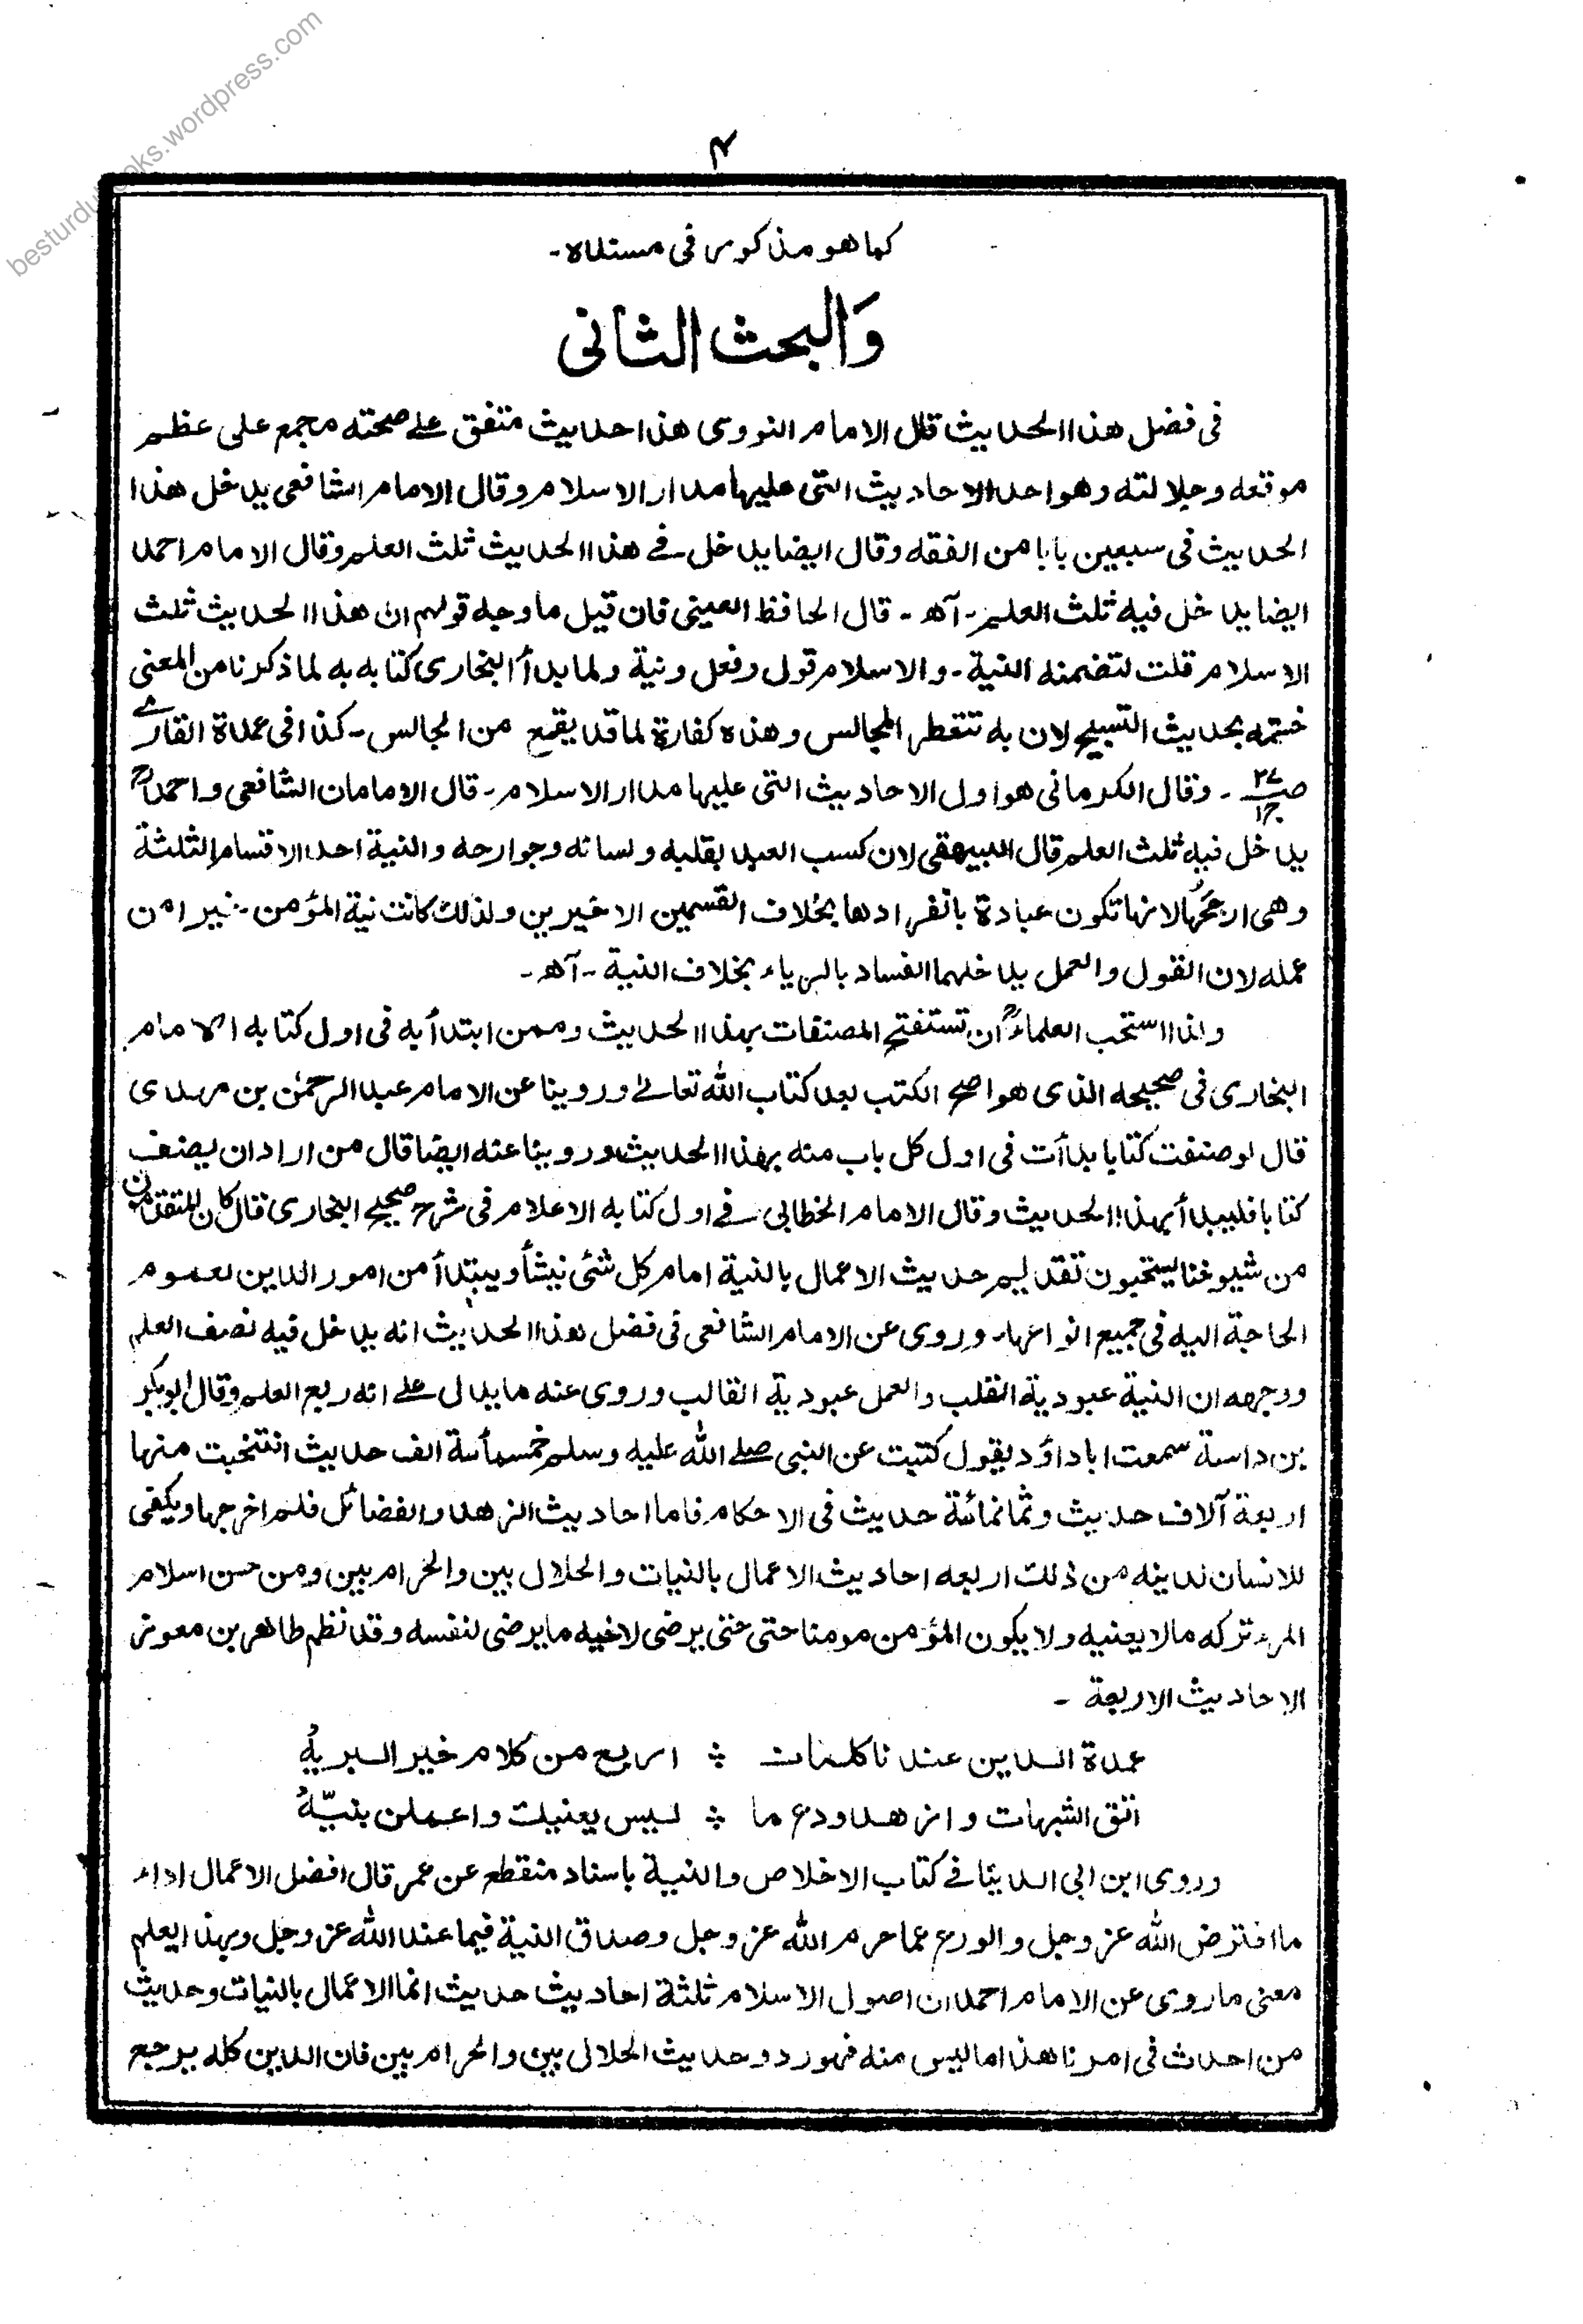 besturdubooks.wordpress.com
۴
كما هو مذكور فى مسنده۔
وَالبحث الثانى
فى فضل هذا الحديث قال الامام النووى هذا حديث متفق على صحته مجمع على عظم
موقعه وجلالته وهو احد الاحاديث التى عليها مدار الاسلام وقال الامام الشافعى يدخل هذا
الحديث فى سبعين بابا من الفقه وقال ايضا يدخل فى هذا الحديث ثلث العلم وقال الامام احمد
ايضا يدخل فيه ثلث العلم۔ آه۔ قال الحافظ العينى فان قيل ما وجه قولهم ان هذا الحديث ثلث
الاسلام قلت لتضمنه النية۔ والاسلام قول وفعل ونية ولما بدأ البخارى كتابه به لما ذكرنا من المعنى
ختمه بحديث التسبيح لان به تتعطر المجالس وهذه كفارة لما قد يقع من المجالس۔ كذا فى عمدة القارى
ص ٢٧ ج١ ۔ وقال الكرمانى هو اول الاحاديث التى عليها مدار الاسلام۔ قال الامامان الشافعى واحمدؒ
يدخل فيه ثلث العلم قال البيهقى لان كسب العبد بقلبه ولسانه وجوارحه والنية احد الاقسام الثلثة
وهى ارجحها لانها تكون عبادة بانفرادها بخلاف القسمين الاخيرين ولذلك كانت نية المؤمن خيرا من
عمله لان القول والعمل يدخلهما الفساد بالرياء بخلاف النية۔ آه۔
ولذا استحب العلماءؒ ان تستفتح المصنفات بهذا الحديث وممن ابتدأ به فى اول كتابه الامام
البخارى فى صحيحه الذى هو اصح الكتب بعد كتاب الله تعالى وروينا عن الامام عبد الرحمٰن بن مهدى
قال لو صنفت كتابا بدأت فى اول كل باب منه بهذا الحديث وروينا عنه ايضا قال من اراد ان يصنف
كتابا فليبدأ بهذا الحديث وقال الامام الخطابى فى اول كتابه الاعلام فى شرح صحيح البخارى قال كان المتقدمون
من شيوخنا يستحبون تقديم حديث الاعمال بالنية امام كل شئ ينشأ ويبتدأ من امور الدين لعموم
الحاجة اليه فى جميع انواعها۔ وروى عن الامام الشافعى فى فضل هذا الحديث انه يدخل فيه نصف العلم
ووجهه ان النية عبودية القلب والعمل عبودية القالب وروى عنه ما يدل على انه ربع العلم وقال ابو بكر
بن داسة سمعت ابا داؤد يقول كتبت عن النبى صلى الله عليه وسلم خمسمأئة الف حديث انتخبت منها
اربعة آلاف حديث وثمانمائة حديث فى الاحكام فاما احاديث الزهد والفضائل فلم اخرجها ويكفى
للانسان لدينه من ذلك اربعه احاديث الاعمال بالنيات والحلال بين والحرام بين ومن حسن اسلام
المرء تركه ما لا يعنيه ولا يكون المؤمن مومنا حتى حتى يرضى لاخيه ما يرضى لنفسه وقد نظم طاهر بن معوز
الاحاديث الاربعة ۔
عمدة الدين عندنا كلمات ؞ اربع من كلام خير البريهْ
اتق الشبهات وازهد ودع ما ؞ ليس يعنيك واعملن بنيّهْ
وروى ابن ابى الدنيا فى كتاب الاخلاص والنية باسناد منقطع عن عمر قال افضل الاعمال اداء
ما افترض الله عز وجل والورع عما حرم الله عز وجل وصدق النية فيما عند الله عز وجل وبهذا يعلم
معنى ما روى عن الامام احمد ان اصول الاسلام ثلثة احاديث حديث انما الاعمال بالنيات وحديث
من احدث فى امرنا هذا ما ليس منه فهو رد وحديث الحلال بين والحرام بين فان الدين كله يرجع